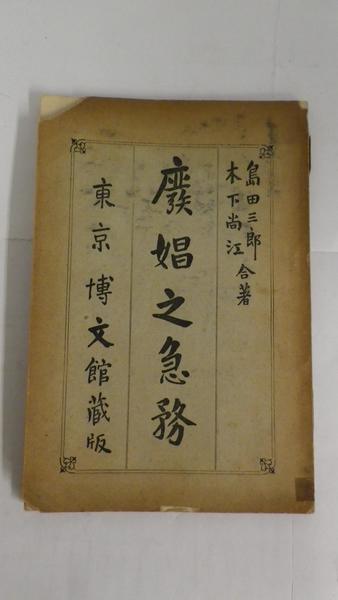 島田三郎
木下尚江 合著
廢娼之急務
東京博文館藏版